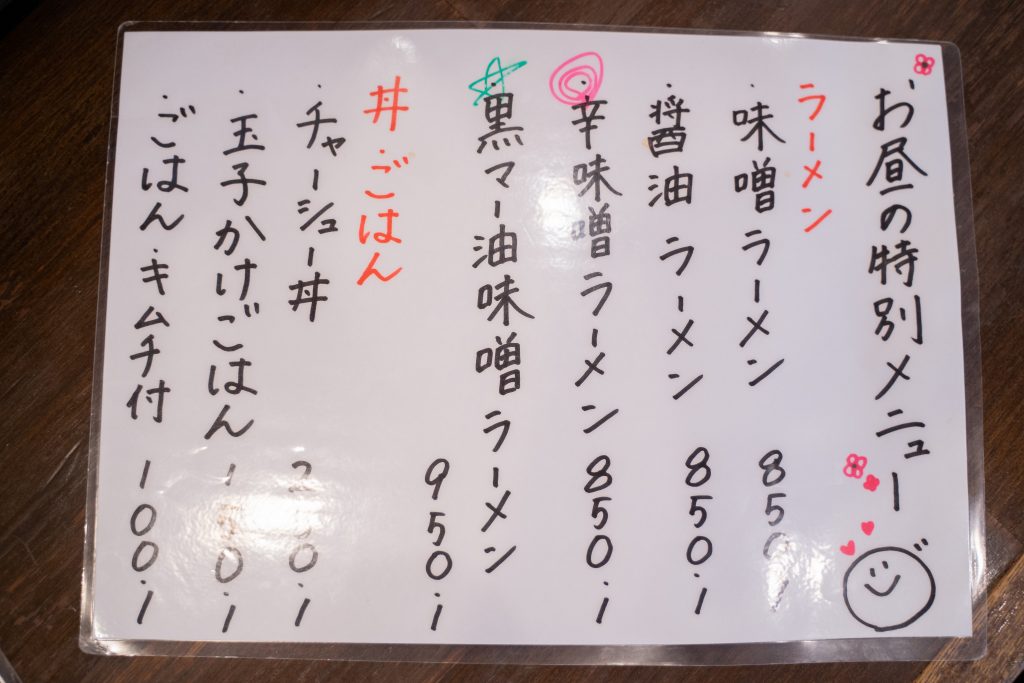 お昼の特別メニュー
ラーメン
・味噌ラーメン 850.-
・醤油ラーメン 850.-
・辛味噌ラーメン 850.-
・黒マー油味噌ラーメン 950.-
丼・ごはん
・チャーシュー丼
・玉子かけごはん
・ごはん・キムチ付 100.-